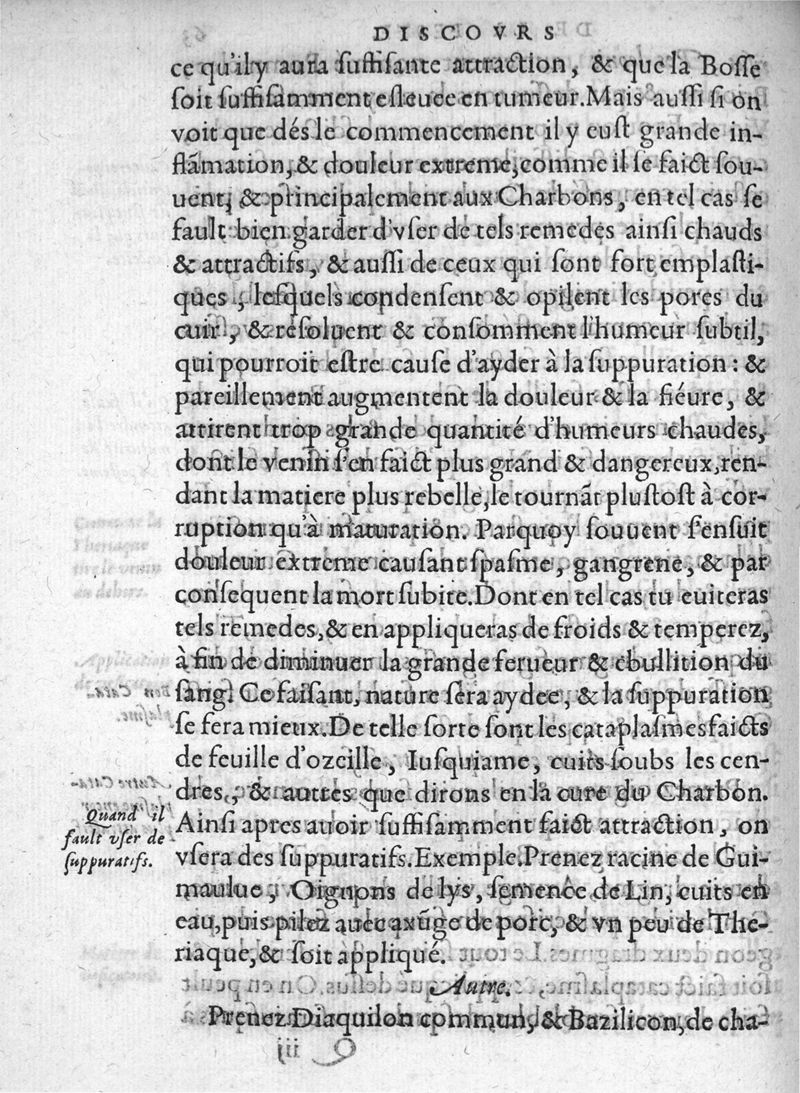 DISCOVRS
ce qu'il y aura suffisante attraction, & que la Bosse
soit suffisamment esleuee en tumeur. Mais aussi si on
voit que dés le commencement il y eust grande in-
flãmation, & douleur extreme, comme il se faict sou-
uent, & principalement aux Charbons, en tel cas se
fault bien garder d'vser de tels remedes ainsi chauds
& attractifs, & aussi de ceux qui sont fort emplasti-
ques, lesquels condensent & opilent les pores du
cuir, & resoluent & consomment l'humeur subtil,
qui pourroit estre cause d'ayder à la suppuration: &
pareillement augmentent la douleur & la fiéure, &
attirent trop grande quantité d'humeurs chaudes,
dont le venin s'en faict plus grand & dangereux, ren-
dant la matiere plus rebelle, le tournãt plustost à cor-
ruption qu'à maturation. Parquoy souuent s'ensuit
douleur extreme causant spasme, gangrene, & par
consequent la mort subite. Dont en tel cas tu euiteras
tels remedes, & en appliqueras de froids & temperez,
à fin de diminuer la grande ferueur & ebullition du
sang. Ce faisant, nature sera aydee, & la suppuration
se fera mieux. De telle sorte sont les cataplasmes faicts
de feuille d'ozeille, Iusquiame, cuits soubs les cen-
dres, & autres que dirons en la cure du Charbon.
Quand il
fault vser de
suppuratifs.
Ainsi apres auoir suffisamment faict attraction, on
vsera des suppuratifs. Exemple. Prenez racine de Gui-
maulue, Oignons de lys, semence de Lin, cuits en
eau, puis pilez auec axũge de porc, & vn peu de The-
riaque, & soit appliqué.
Autre.
Prenez Diaquilon commun, & Bazilicon, de cha-